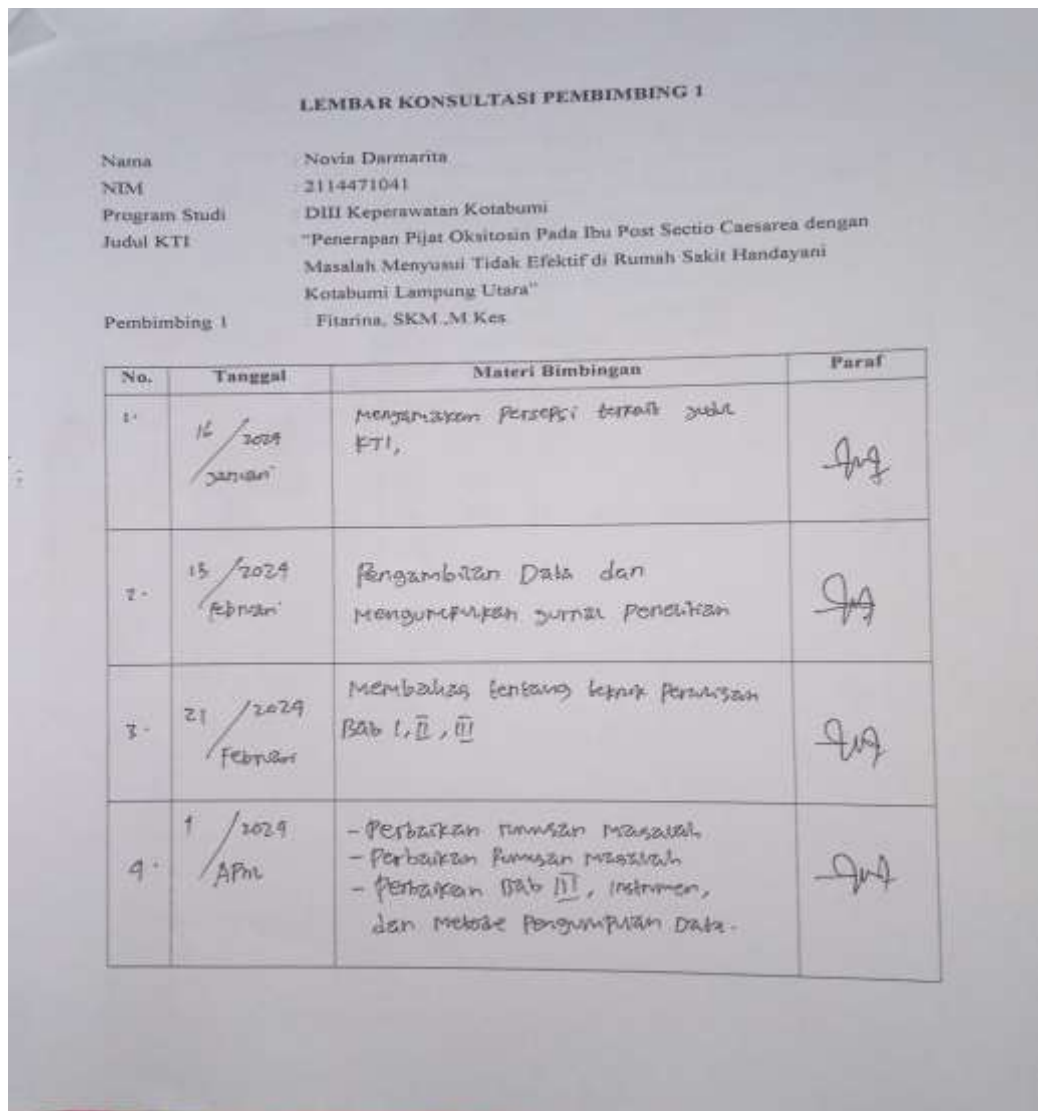 LEMBAR KONSULTASI PEMBIMBING 1
Nama : Novia Darmarita
NIM : 2114471041
Program Studi : DIII Keperawatan Kotabumi
Judul KTI : "Penerapan Pijat Oksitosin Pada Ibu Post Sectio Caesarea dengan
Masalah Menyusui Tidak Efektif di Rumah Sakit Handayani
Kotabumi Lampung Utara"
Pembimbing 1 : Fitarina, SKM.,M.Kes
No. Tanggal Materi Bimbingan Paraf
1. 16 / 2024 Januari Menyamakan Persepsi terkait judul
KTI,
2. 13 / 2024 Februari Pengambilan Data dan
Mengumpulkan Jurnal Penelitian
3. 21 / 2024 Februari Membahas tentang teknik Penulisan
Bab I, II, III
4. 1 / 2024 April - Perbaikan rumusan Masalah
- Perbaikan Rumusan Masalah
- Perbaikan Bab III, Instrumen,
dan Metode Pengumpulan Data.